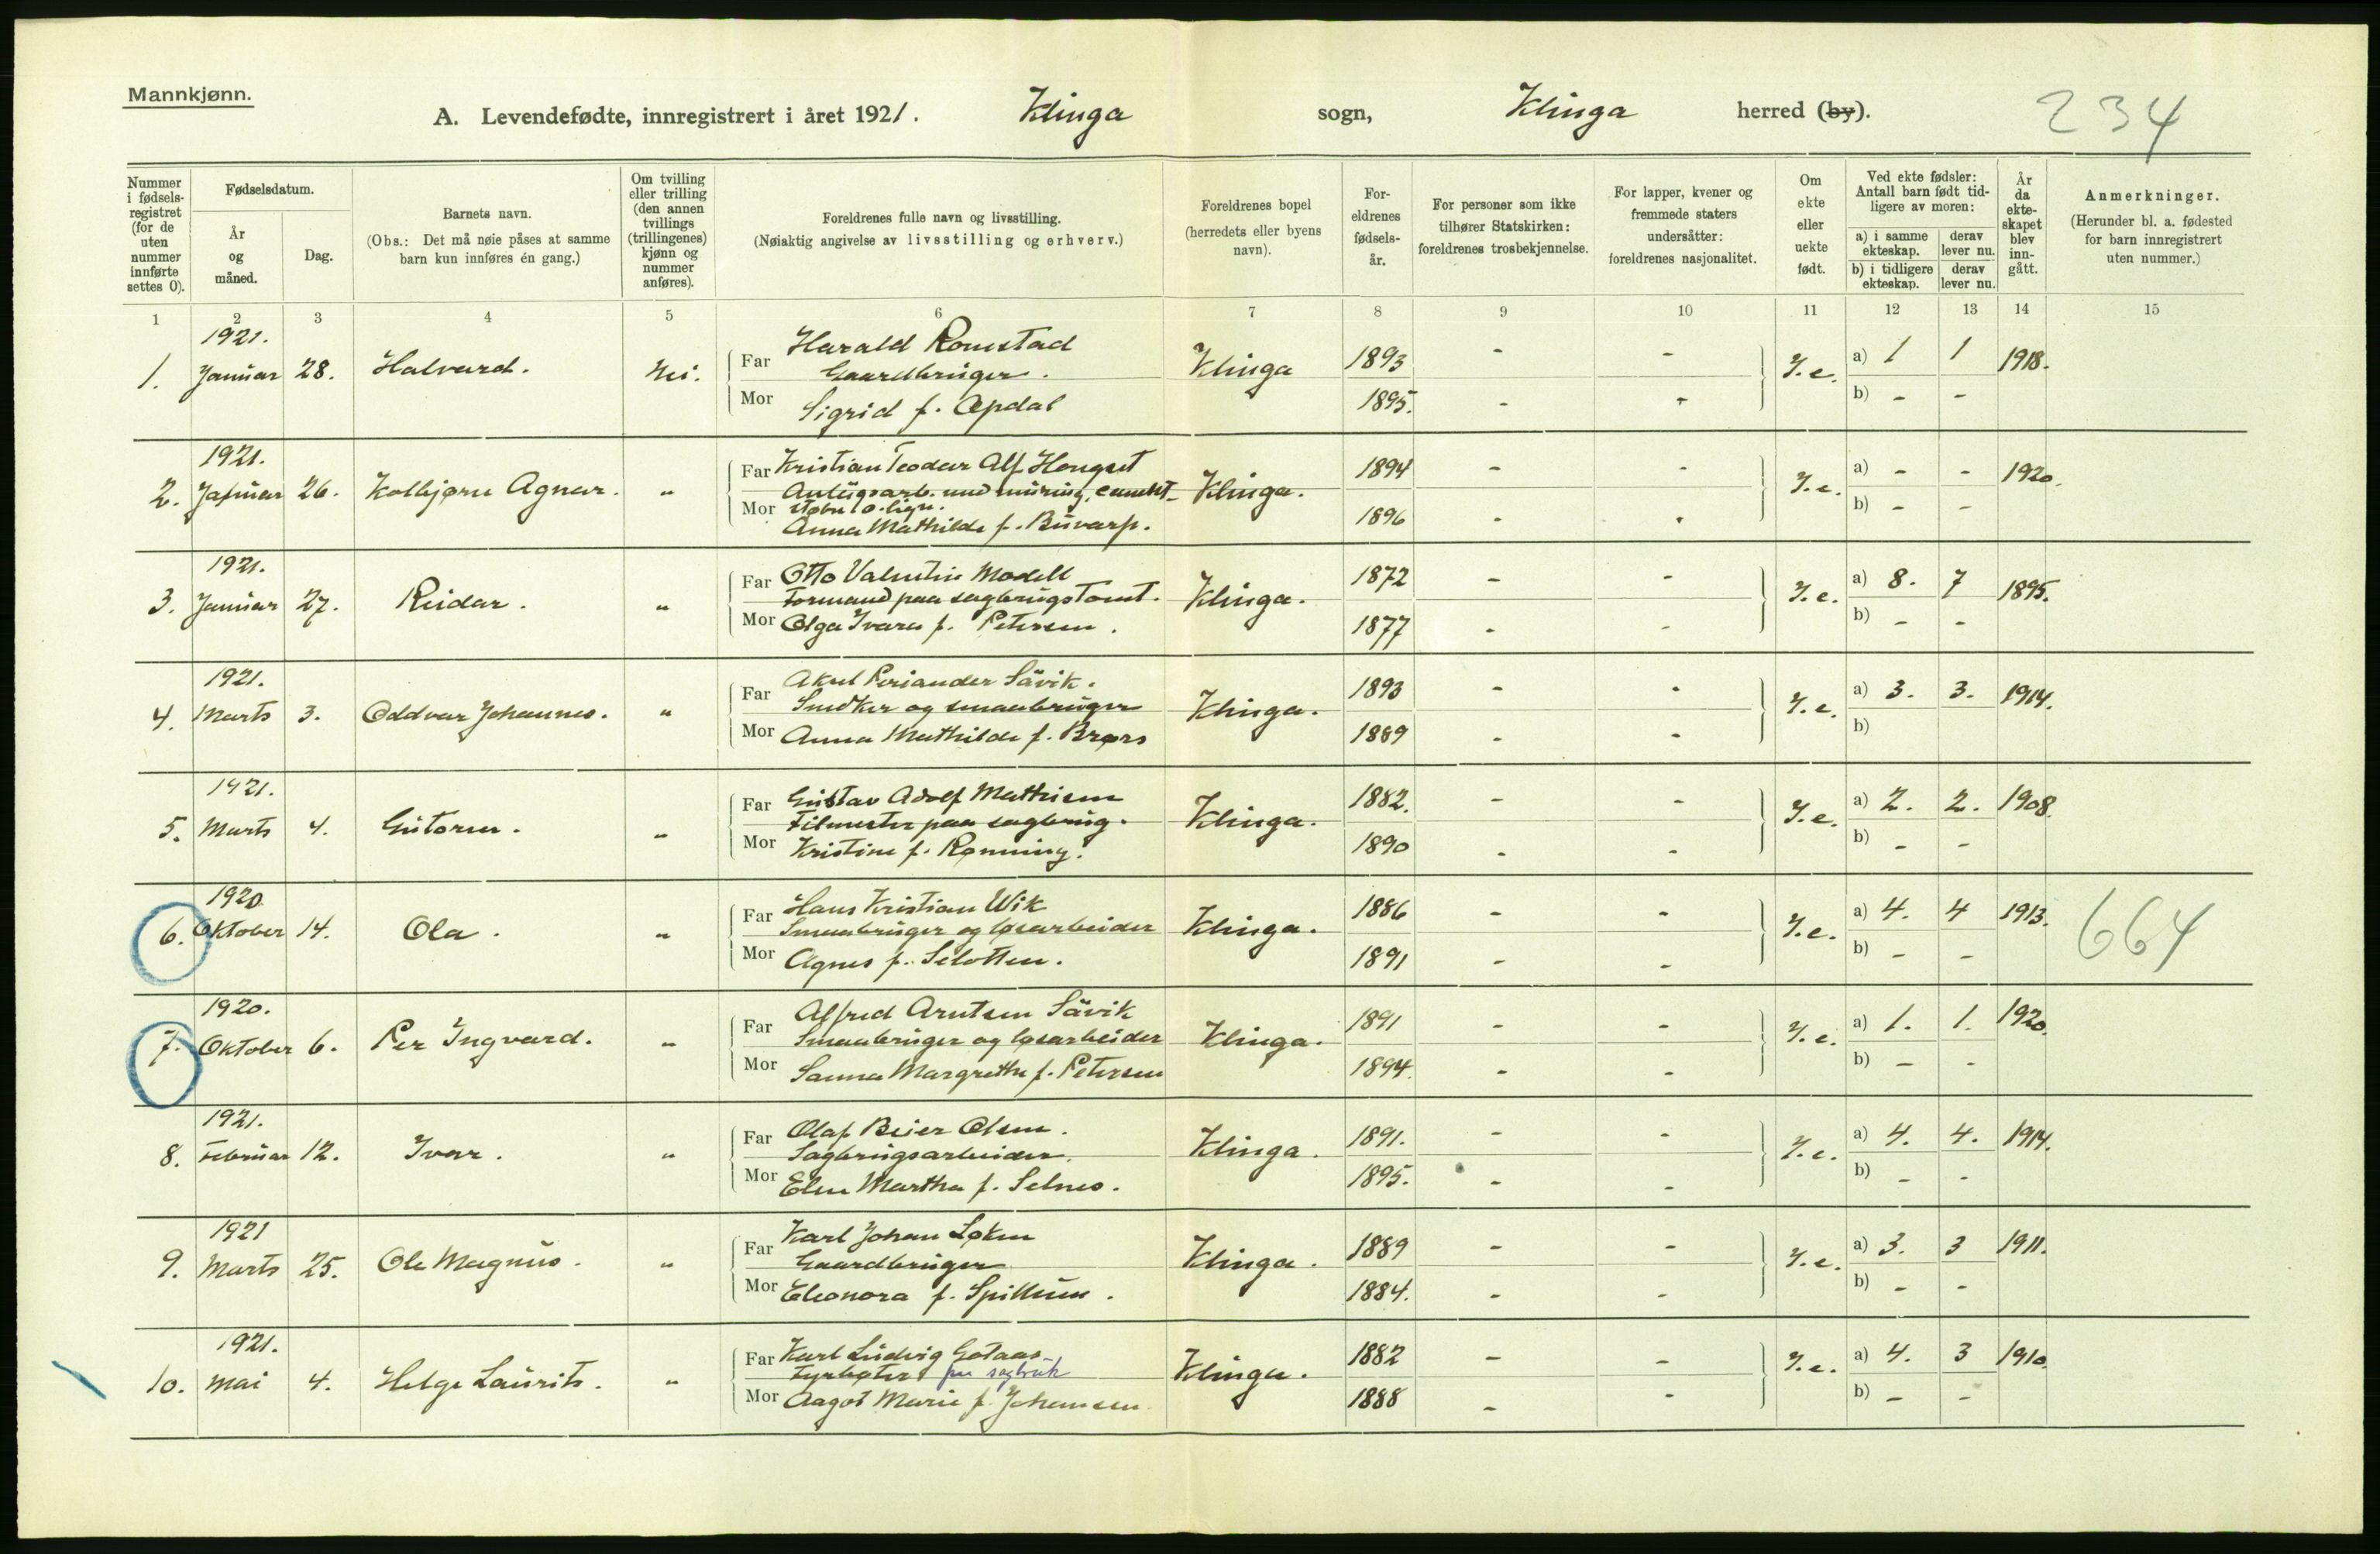 Mannkjønn.
A. Levendefødte, innregistrert i året 1921. Klinga sogn, Klinga herred (by). 234
Nummer i fødsels-registret (for de uten nummer innførte settes 0).
Fødselsdatum.
År og måned.
Dag.
Barnets navn.
(Obs.: Det må nøie påses at samme barn kun innføres én gang.)
Om tvilling eller trilling (den annen tvillings (trillingenes) kjønn og nummer anføres).
Foreldrenes fulle navn og livsstilling.
(Nøiaktig angivelse av livsstilling og erhverv.)
Foreldrenes bopel (herredets eller byens navn).
For-eldrenes fødsels-år.
For personer som ikke tilhører Statskirken: foreldrenes trosbekjennelse.
For lapper, kvener og fremmede staters undersåtter: foreldrenes nasjonalitet.
Om ekte eller uekte født.
Ved ekte fødsler: Antall barn født tid-ligere av moren:
a) i samme ekteskap. derav lever nu.
b) i tidligere ekteskap. derav lever nu.
År da ekte-skapet blev inn-gått.
Anmerkninger.
(Herunder bl. a. fødested for barn innregistrert uten nummer.)
1 2 3 4 5 6 7 8 9 10 11 12 13 14 15
1921.
1. Januar 28. Halvard. Nei. Far Harald Romstad Klinga 1893 - - I.e. a) 1 1 1918.
Gaardbruger.
Mor Sigrid f. Opdal 1895. - - b) - -
1921.
2. Januar 26. Kolbjørn Agnar. " Far Kristian Teodor Alf Hongset Klinga. 1894 - - I.e. a) - - 1920.
Anlægsarb. ved muring, cement-
støbn. o. lign.
Mor Anna Mathilde f. Buvarp. 1896 - - b) - -
1921.
3. Januar 27. Reidar. " Far Otto Valentin Modell Klinga. 1872 - - I.e. a) 8. 7 1895.
Formand paa sagbrugstomt.
Mor Olga Ivara f. Petersen. 1877 - - b) - -
1921.
4. Marts 3. Oddvar Johannes. " Far Aksel Periander Sävik. Klinga. 1893 - - I.e. a) 3. 3. 1914.
Snedker og smaabruger
Mor Anna Mathilde f. Brørs 1889 - - b)
1921.
5. Marts 4. Gutorm. " Far Gustav Adolf Mathisen Klinga. 1882. - - I.e. a) 2. 2. 1908.
Filmester paa sagbrug.
Mor Kristine f. Rønning. 1890 - - b) - -
1920
6. Oktober 14. Ola. " Far Hans Kristian Wik Klinga. 1886 - - I.e. a) 4. 4 1913. 664
Smaabruger og løsarbeider
Mor Agnes f. Selotten. 1891 - - b) - -
1920.
7. Oktober 6. Per Ingvard. " Far Alfred Arntsen Sävik Klinga. 1891 - - I.e. a) 1. 1. 1920.
Smaabruger og løsarbeider
Mor Sanna Margrethe f. Petersen 1894. - - b) - -
1921.
8. Februar 12. Ivar. " Far Olaf Beier Olsen. Klinga. 1891. - - I.e. a) 4. 4. 1914.
Sagbrugsarbeider.
Mor Elen Martha f. Selnes. 1895. - - b) - -
1921
9. Marts 25. Ole Magnus. " Far Karl Johan Løken Klinga. 1889 - - I.e. a) 3. 3 1911.
Gaardbruger
Mor Eleonora f. Spillum. 1884. - - b) - -
1921.
10. Mai 4. Helge Laurits. " Far Karl Ludvig Gotaas Klinga. 1882 - - I.e. a) 4. 3 1910.
Fyrbøter paa sagbruk
Mor Aagot Marie f. Johansen 1888 - - b) - -